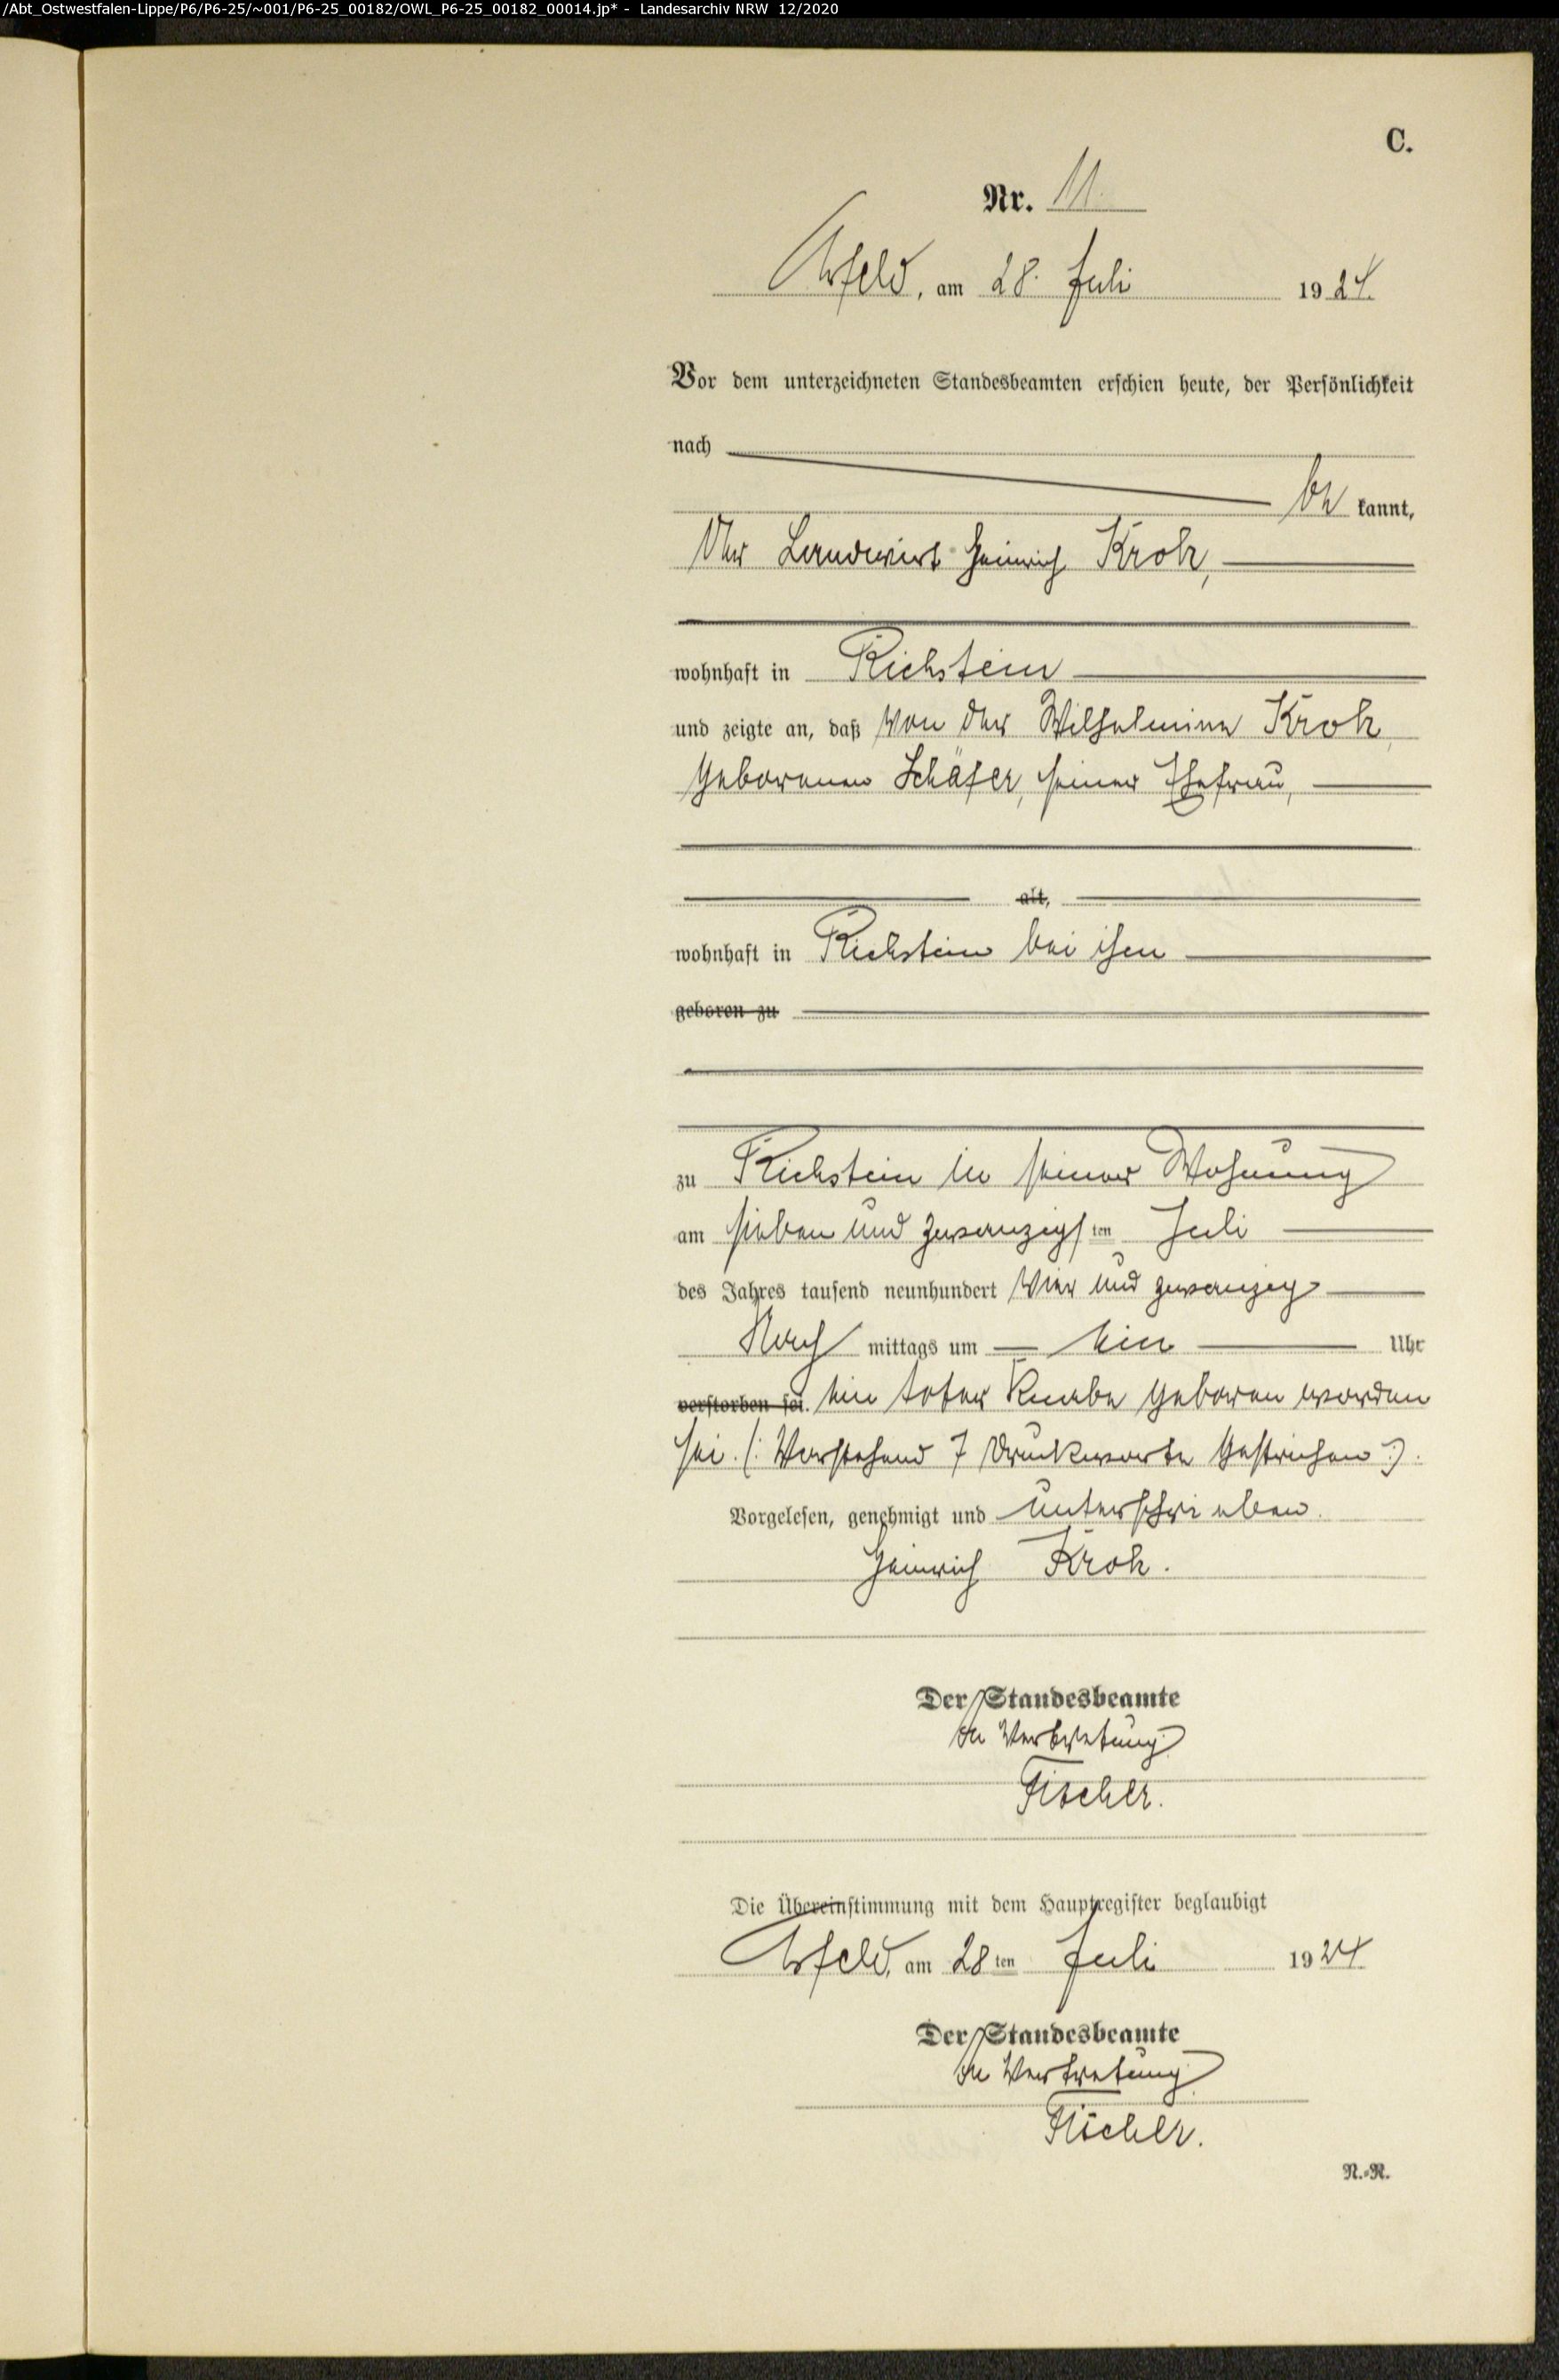 /Abt_Ostwestfalen-Lippe/P6/P6-25/~001/P6-25_00182/OWL_P6-25_00182_00014.jp* - Landesarchiv NRW 12/2020
C.
Nr. 11.
Arfeld, am 28. Juli 1924.
Vor dem unterzeichneten Standesbeamten erschien heute, der Persönlichkeit
nach
be kannt,
Der Landwirt Heinrich Kroh,
wohnhaft in Richstein
und zeigte an, daß von der Wilhelmine Kroh
geborenen Schäfer, seiner Ehefrau,
alt,
wohnhaft in Richstein bei ihm
geboren zu
zu Richstein in seiner Wohnung
am sieben und zwanzigsten Juli
des Jahres tausend neunhundert vier und zwanzig
Nach mittags um ein Uhr
verstorben sei. ein toter Knabe geboren worden
sei. (: Vorstehend 7 Druckworte gestrichen :).
Vorgelesen, genehmigt und unterschrieben.
Heinrich Kroh.
Der Standesbeamte
In Vertretung
Fischer.
Die Übereinstimmung mit dem Hauptregister beglaubigt
Arfeld, am 28ten Juli 1924
Der Standesbeamte
In Vertretung
Fischer.
N.-R.